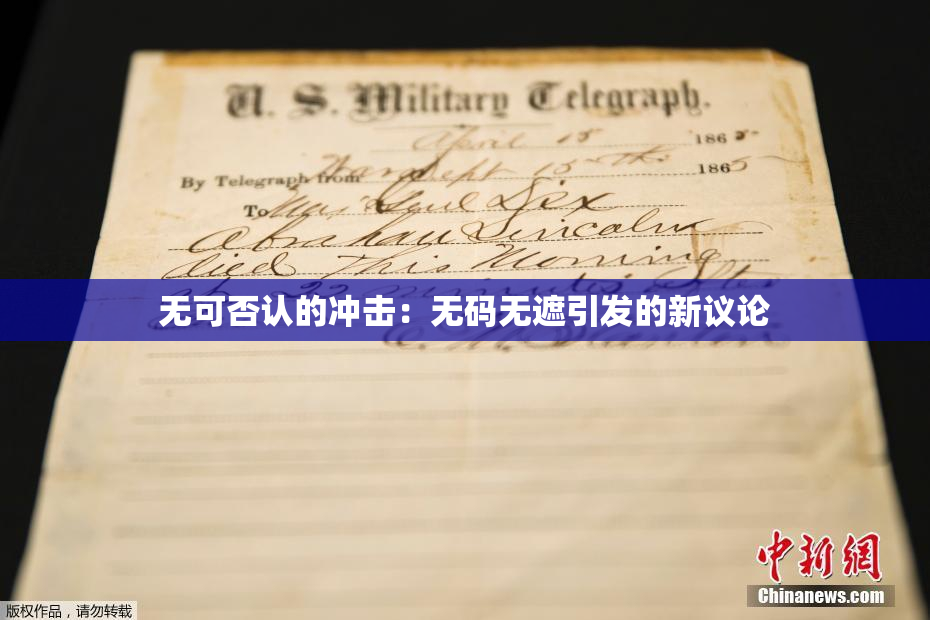 U. S. Military Telegraph.
April 15 1865
By Telegraph from War Dept 15th 1865
To Maj Genl Dix
Abraham Lincoln
died This Morning
at 22 minutes after
无可否认的冲击：无码无遮引发的新议论
E. M. Stanton
中新網
Chinanews.com
版权作品，请勿转载